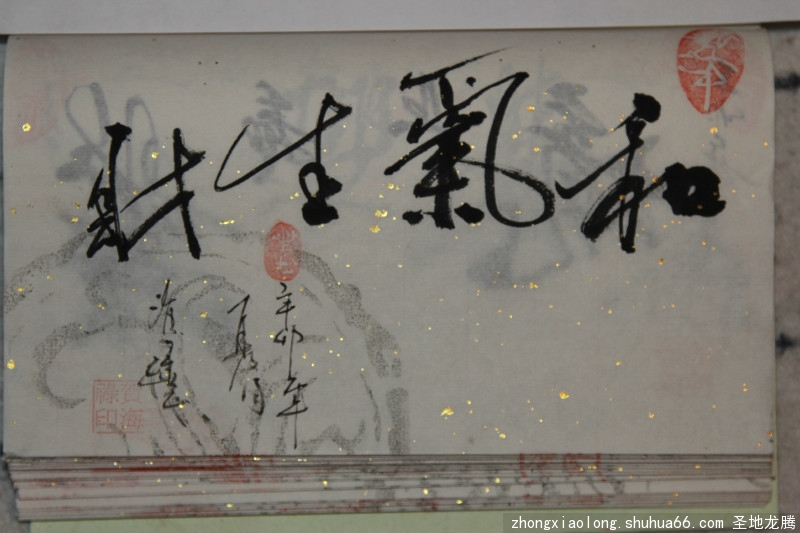 和氣生財
辛卯年
夏月
賀海
祿印
zhongxiaolong.shuhua66.com 圣地龙腾